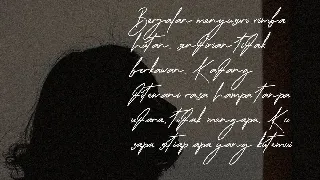 Berjalan menyusuri rimba
hutan, sendirian tidak
berkawan. Kadang
ditemani rasa hampa tanpa
udara, tidak mengapa. Ku
sapa setiap apa yang kutemui